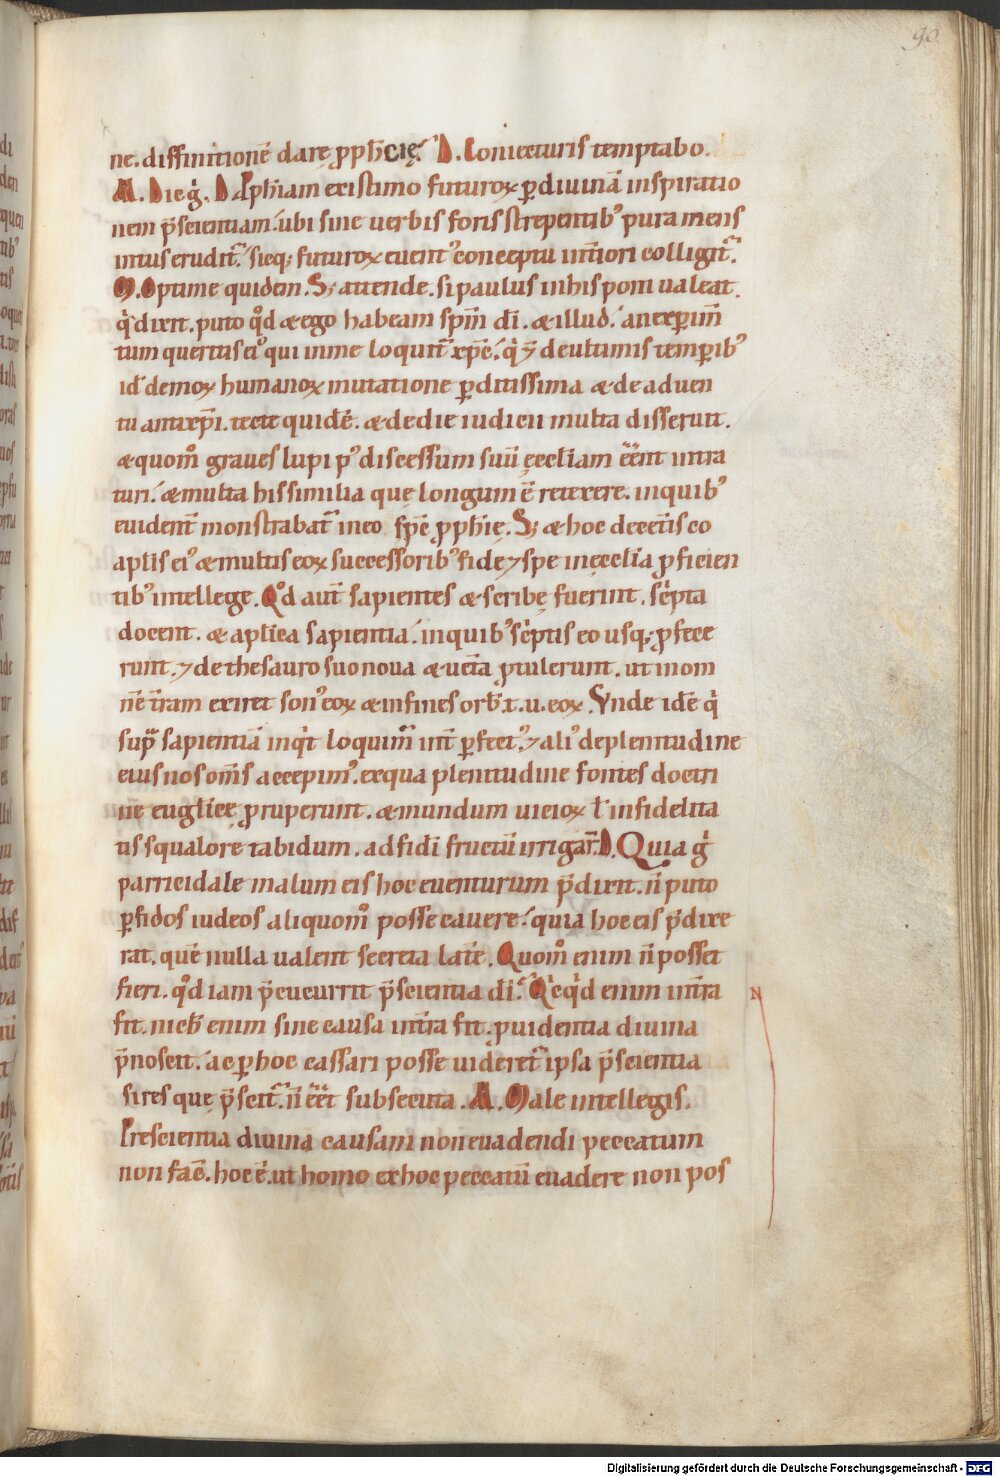 90.
ne. diffinitionē dare ꝓph̄cię. D. Coniecturis temptabo.
M. Dic ḡ. D. Ꝓph̄iam existimo futuroꝝ ꝑ diuinā inspiratio
nem p̄scientiam. ubi sine uerbis foris strepentibꝰ pura mens
intus erudit̄. sicq; futuroꝝ euentꝰ conceptu int̄iori colligit̄.
M. Optime quidem. S; attende. si paulus in his poni ualeat.
q' dixit. puto qd̄ & ego habeam sp̄m dī. & illud. an exꝑim̄
tum queritis eiꝰ qui in me loquit̄ xp̄c. q' ⁊ de ultimis temꝑibꝰ
id ē de moꝝ humanoꝝ mutatione ꝑditissima & de aduen
tu antixp̄i. tecte quidē. & de die iudicii multa disseruit.
& quom̊ graues lupi p' discessum suū ęccl̄iam ēēnt intra
turi. & multa his similia que longum ē retexere. in quibꝰ
euident̄ monstrabat̄ in eo sp̄c ꝓph̄ię. S; & hoc de cet̄is co
apl̄is eiꝰ & multis eoꝝ successoribꝰ fide ⁊ spe in ęccl̄ia ꝓficien
tibꝰ intellege. Qd̊ aut̄ sapientes & scribę fuerint. sc'pta
docent. & apl̄ica sapientia. in quibꝰ sc'ptis eo usq; ꝓfece
runt. ⁊ de thesauro suo noua & uet̄a ꝓtulerunt. ut in om
nē t̄ram exiret sonꝰ eoꝝ & in fines orb̄. t. u. eoꝝ. Vnde idē q'
sup̄ sapientiā inq't loquim̄ int̄ ꝑfectꝰ. ⁊ aliꝰ de plenitudine
eius nos om̄s accepimꝰ. ex qua plenitudine fontes doctri
nę eugl̄icę ꝓruperunt. & mundum uicioꝝ l̄ infidelita
tis squalore tabidum. ad fidī fructū irrigar̄. D. Quia g'
parricidale malum eis hoc euenturum p̄dixit. n̄ puto
ꝑfidos iudeos aliquom̊ posse cauere. quia hoc eis p̄dixe
rat. quē nulla ualent secreta lat̄e. Quom̊ enim n̄ posset
fieri. qd̊ iam p̄cucurrit p̄scientia dī. Q'cq'd enim int̄ra
fit. nich̄ enim sine causa int̄ra fit. ꝓuidentia diuina
p̄noscit. ac ꝑ hoc cassari posse uideret̄ ipsa p̄scientia
si res quę p̄scit̄. n̄ ēēt subsecuta. M. Male intellegis.
Prescientia diuina causam non euadendi peccatum
non fac̄. hoc ē. ut homo ex hoc peccatū euadere non pos
N
Digitalisierung gefördert durch die Deutsche Forschungsgemeinschaft - DFG